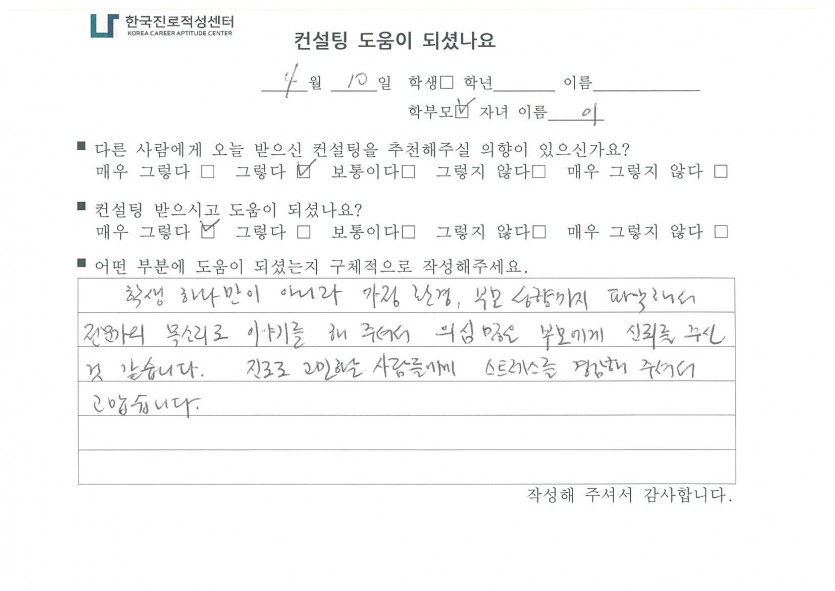 한국진로적성센터
KOREA CAREER APTITUDE CENTER
컨설팅 도움이 되셨나요
4 월 10 일 학생□ 학년 이름
학부모☑ 자녀 이름 이
■ 다른 사람에게 오늘 받으신 컨설팅을 추천해주실 의향이 있으신가요?
매우 그렇다 □ 그렇다 ☑ 보통이다□ 그렇지 않다□ 매우 그렇지 않다 □
■ 컨설팅 받으시고 도움이 되셨나요?
매우 그렇다 ☑ 그렇다 □ 보통이다□ 그렇지 않다□ 매우 그렇지 않다 □
■ 어떤 부분에 도움이 되셨는지 구체적으로 작성해주세요.
학생 하나만이 아니라 가정 환경, 부모 성향까지 파악해서
전문가의 목소리로 이야기를 해 주셔서 의심 많은 부모에게 신뢰를 주신
것 같습니다. 진로로 고민하는 사람들에게 스트레스를 경감해 주셔서
고맙습니다.
작성해 주셔서 감사합니다.